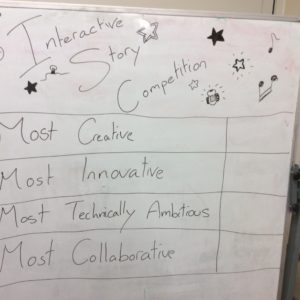 Interactive
Story
Competition
Most Creative
Most Innovative
Most Technically Ambitious
Most Collaborative